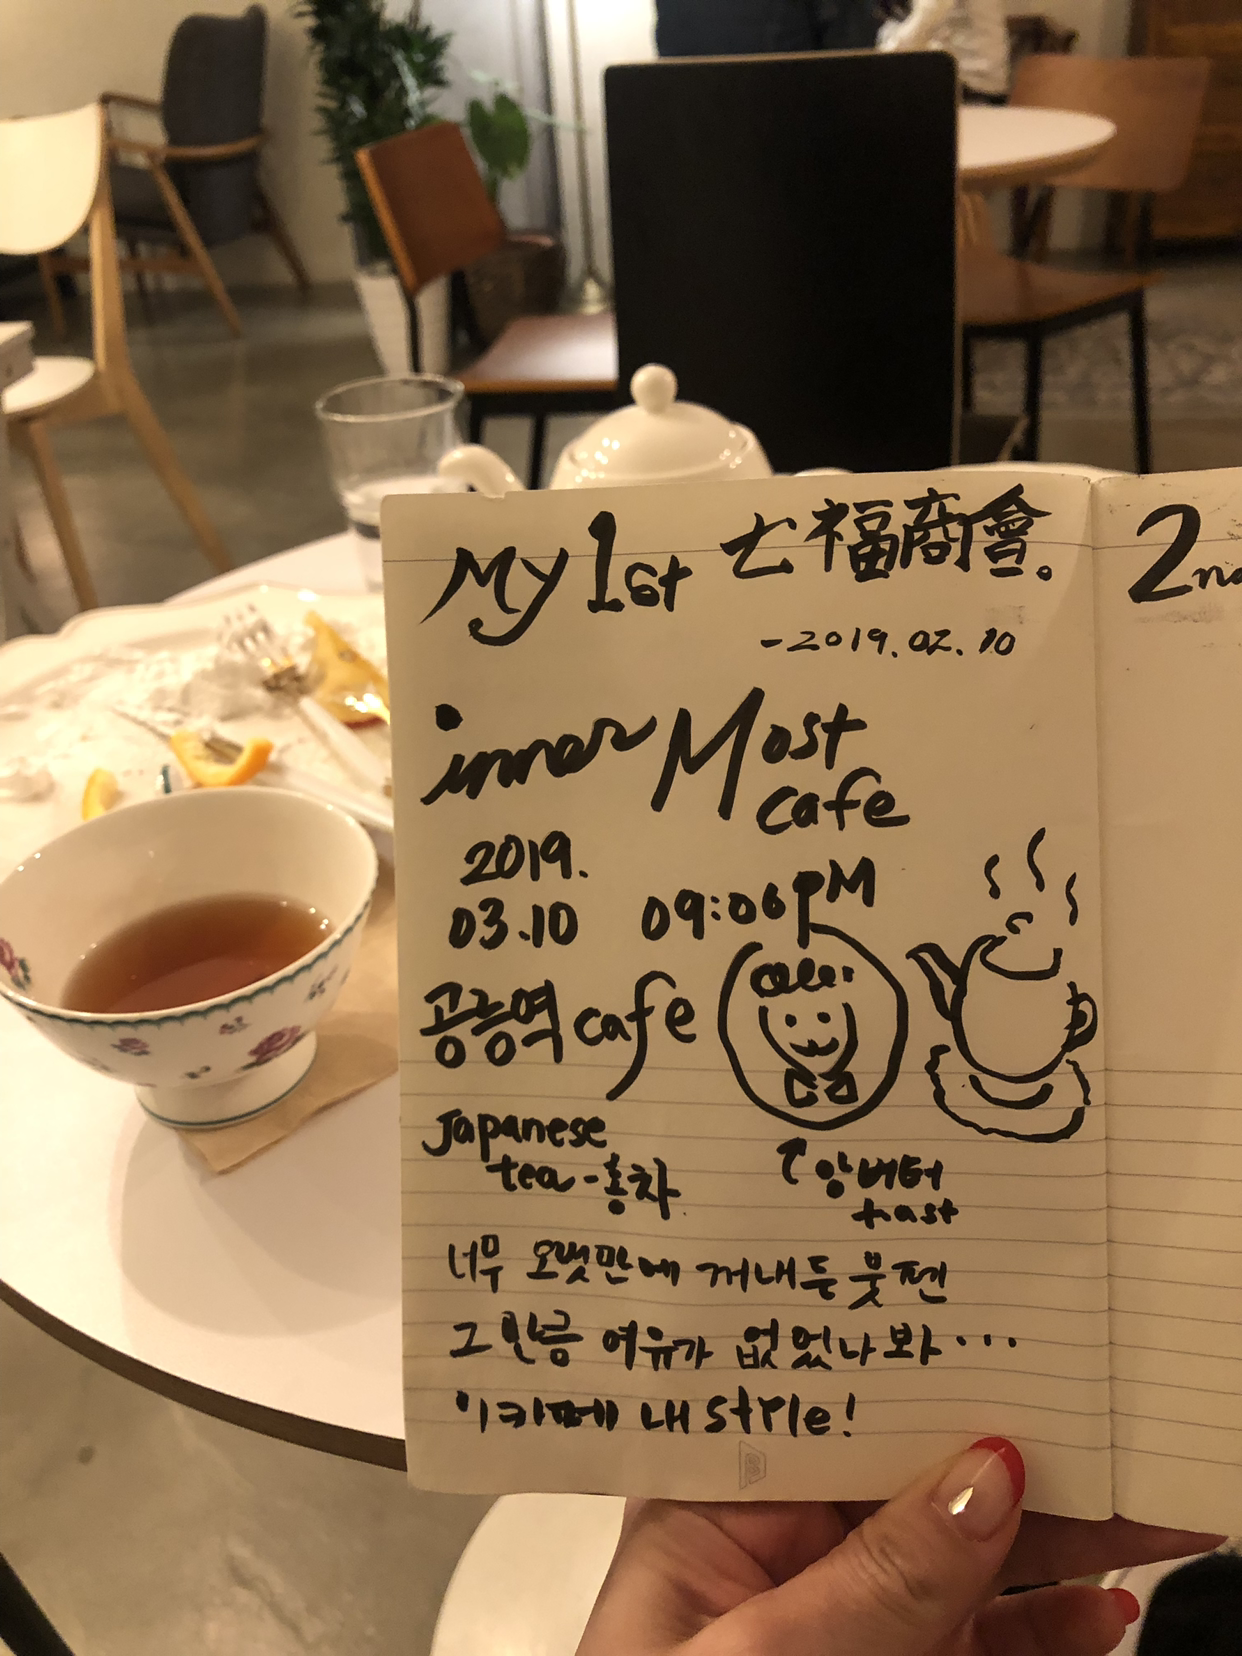 My 1st 七福商會。
-2019.02.10
inner Most
cafe
2019.
03.10 09:06PM
공릉역 cafe
Japanese
tea-홍차
앙버터
toast
너무 오랫만에 꺼내든 붓펜
그만큼 여유가 없었나봐...
이카페 내 style!
2nd